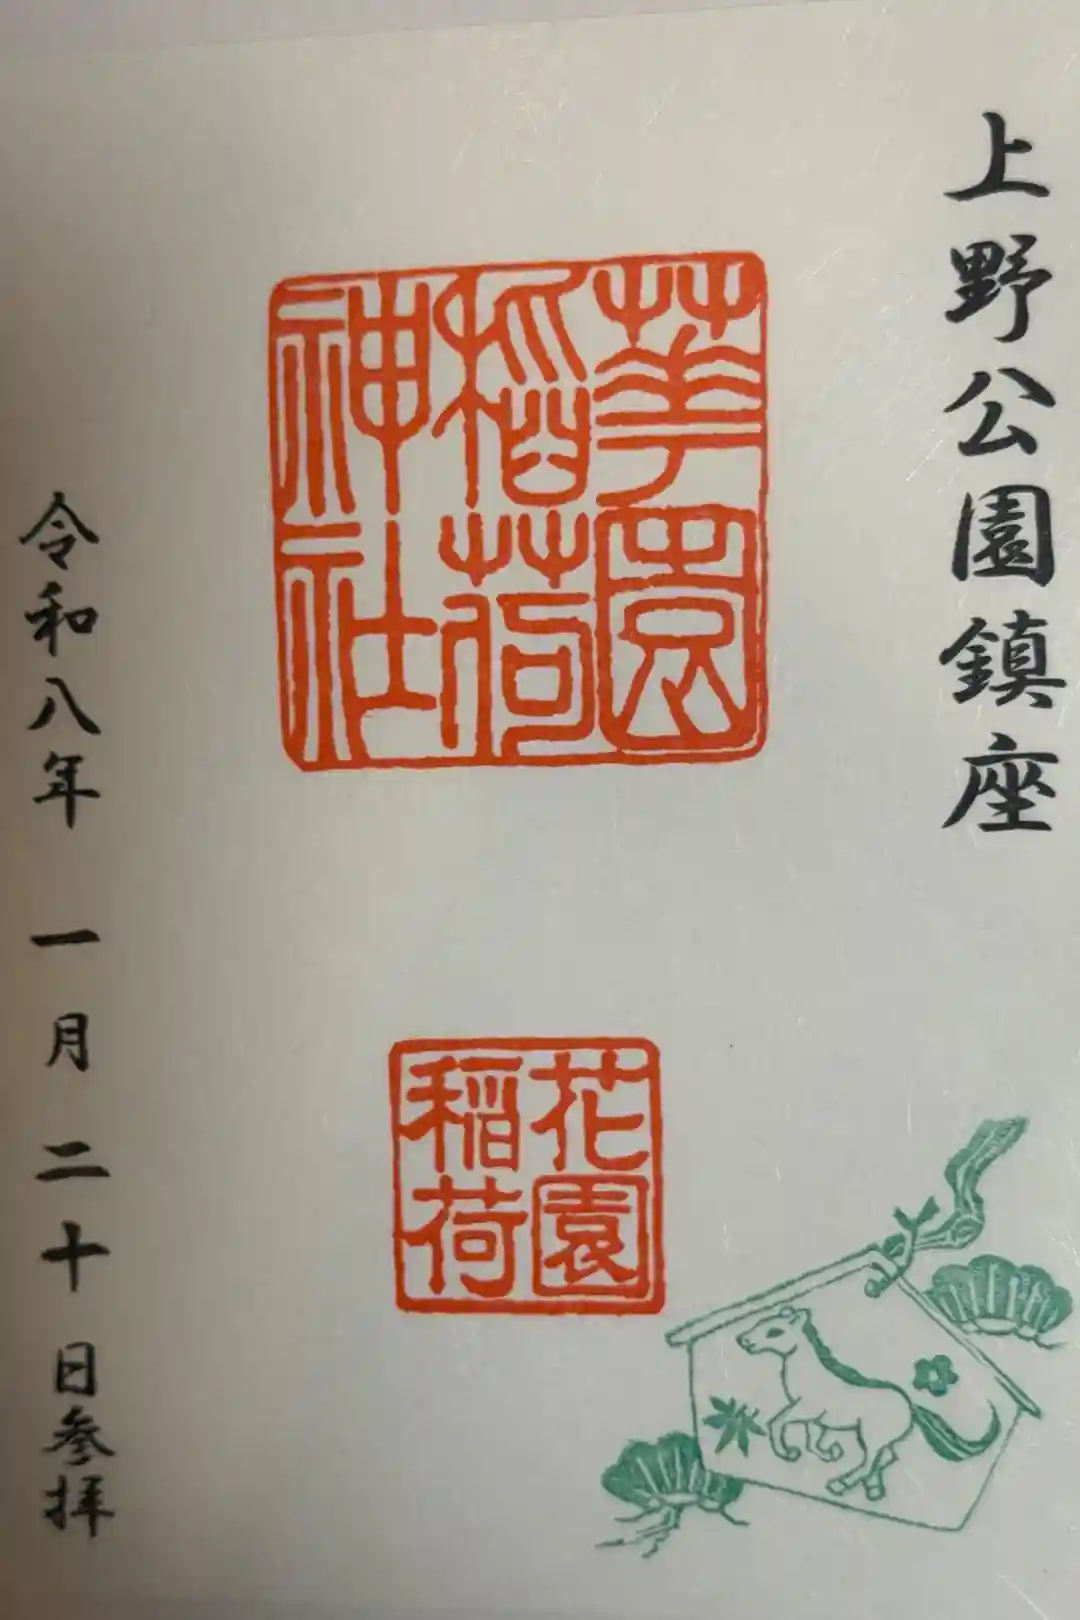 上野公園鎮座
華園
稲荷
神社
花園
稲荷
令和八年一月二十日参拝